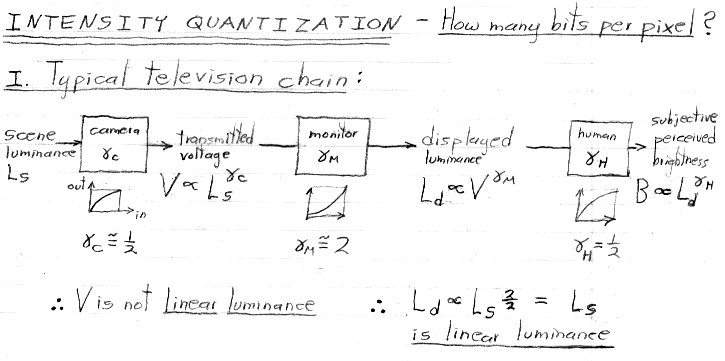 INTENSITY QUANTIZATION - How many bits per pixel?
I. Typical television chain:
scene luminance Ls
camera γc
transmitted voltage V ∝ Ls^γc
monitor γM
displayed luminance Ld ∝ V^γM
human γH
subjective perceived brightness B ∝ Ld^γH
out in
γc ≅ 1/2
γM ≅ 2
γH = 1/2
∴ V is not linear luminance
∴ Ld ∝ Ls^2/2 = Ls
is linear luminance